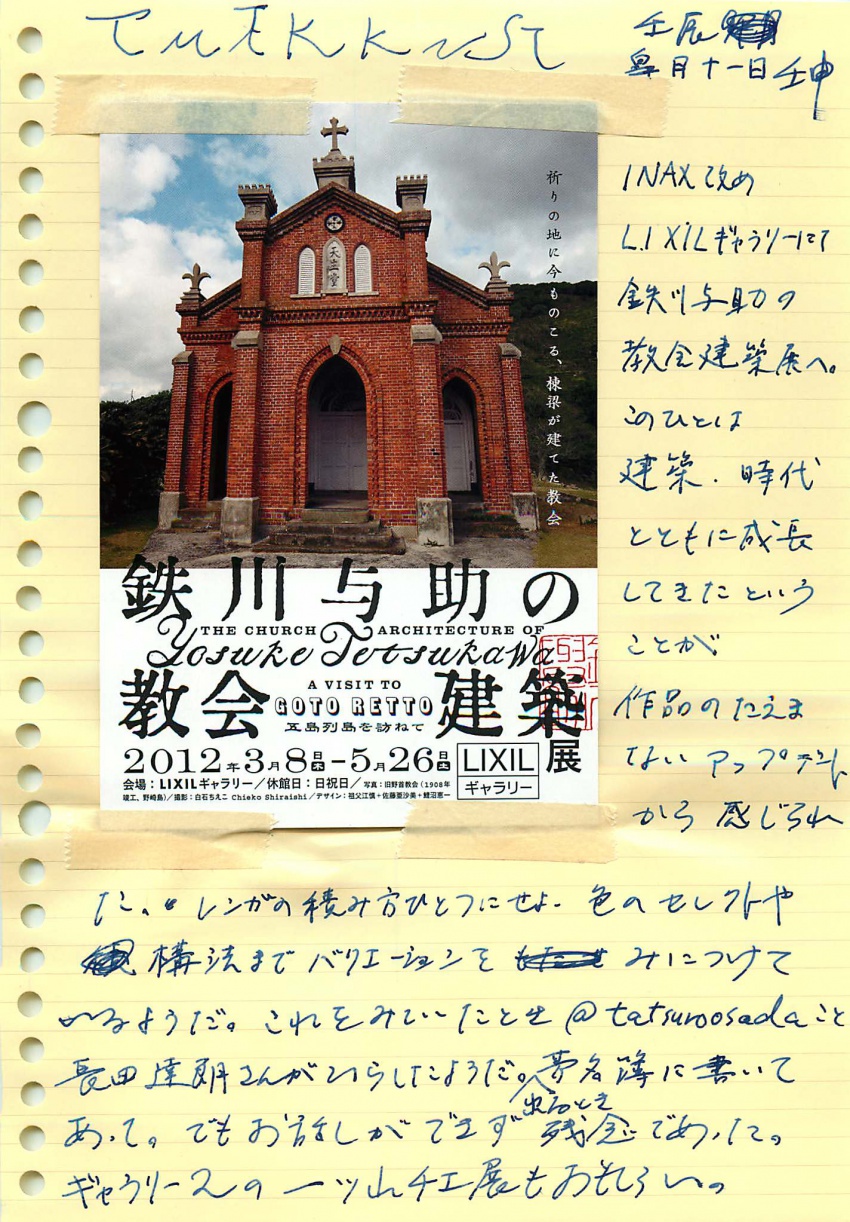 壬辰
皐月十一日 壬申
祈りの地に今ものこる、棟梁が建てた教会
天主堂
鉄川与助の
THE CHURCH ARCHITECTURE OF
Yosuke Tetsukawa
教会
A VISIT TO
GOTO RETTO
五島列島を訪ねて
建築展
2012年3月8日木-5月26日土
LIXIL
ギャラリー
会場:LIXILギャラリー/休館日:日祝日/写真:旧野首教会(1908年
竣工、野崎島)/撮影:白石ちえこ Chieko Shiraishi/デザイン:祖父江慎+佐藤亜沙美+鯉沼恵一
INAX改め
LIXILギャラリーにて
鉄川与助の
教会建築展へ。
このひとは
建築・時代
とともに成長
してきたという
ことが
作品のたえま
ないアップデート
から感じられ
た。レンガの積み方ひとつにせよ、色のセレクトや
構法までバリエーションをみにつけて
いるようだ。これをみていたとき@tatsuroosadaこと
長田達朗さんがいらしたようだ。出るとき
芳名簿に書いて
あって。でもお話しができず残念であった。
ギャラリー2の一ツ山チエ展もおもしろい。